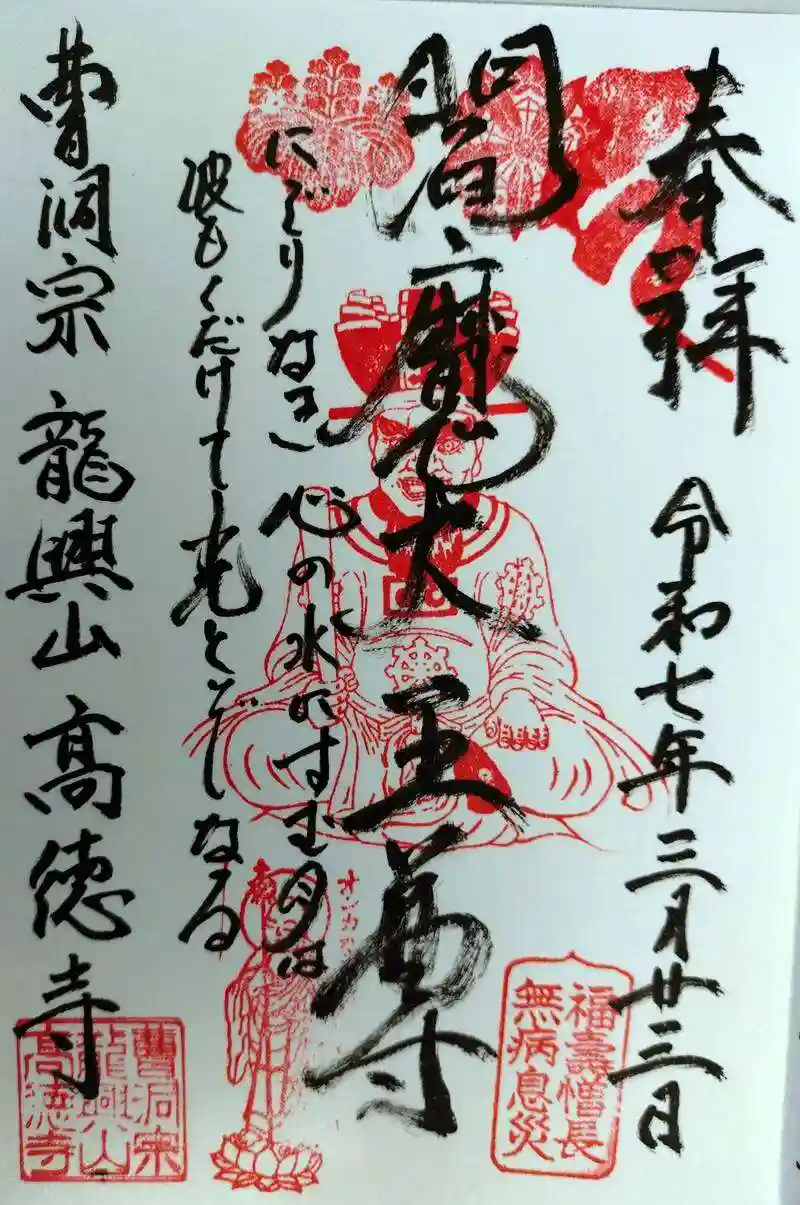 奉拝
令和七年三月廿三日
閻魔大王尊
にごりなき心の水にすむ月は
波もくだけて光とぞなる
曹洞宗 龍興山 高徳寺
福壽増長
無病息災
曹洞宗
龍興山
高徳寺